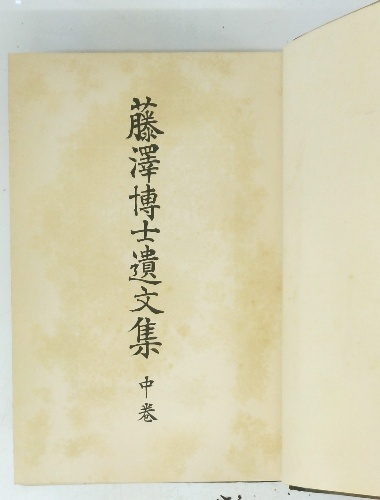 藤澤博士遺文集
中卷